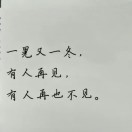 一晃又一冬，
有人再见，
有人再也不见。